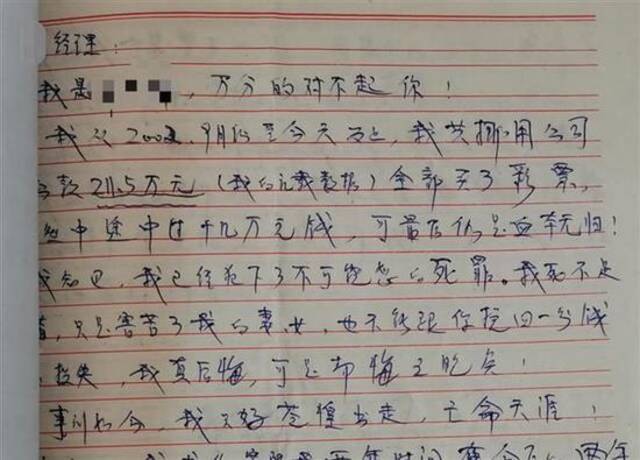 经理：
我是，万分的对不起你！
我从2002.9月份至今天为止，我共挪用公司
款21.5万元（我的记载数据）全部买了彩票，
中途中过十几万元钱，可最后仍是血本无归！
我知已，我已经犯下了不可饶恕的死罪。我死不足
惜，只是害苦了我的妻女，也不能跟你挽回一分钱
损失，我真后悔，可是却悔之晚矣！
事到如今，我只好苍惶出走，亡命天涯！